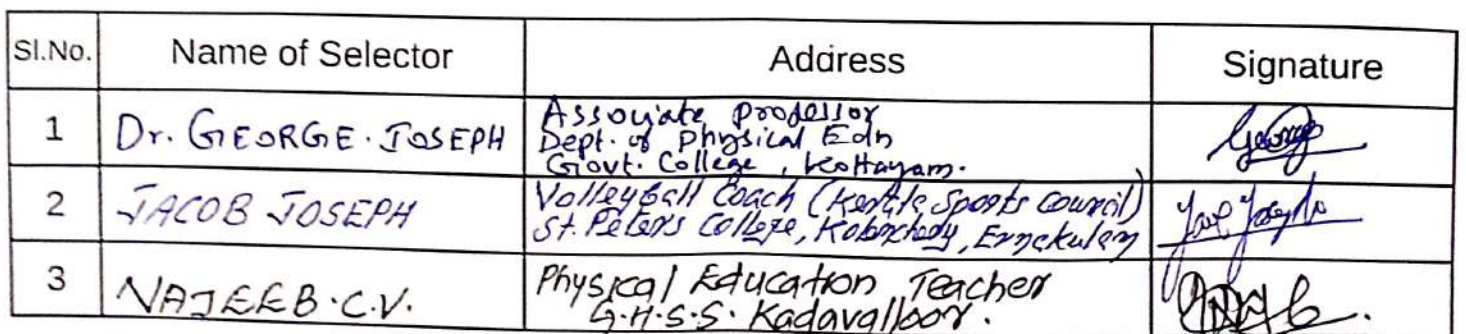 Sl.No. Name of Selector Address Signature
1 Dr. GEORGE. JOSEPH Associate professor
Dept. of Physical Edn
Govt. College, Kottayam.
2 JACOB JOSEPH Volleyball Coach (Kerala Sports Council)
St. Peter's College, Kolenchery, Ernakulam
3 NAJEEB.C.V. Physical Education Teacher
G.H.S.S. Kadavalloor.